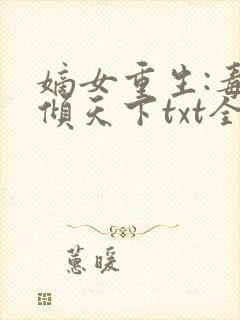 嫡女重生:毒
倾天下txt全
蕙暖